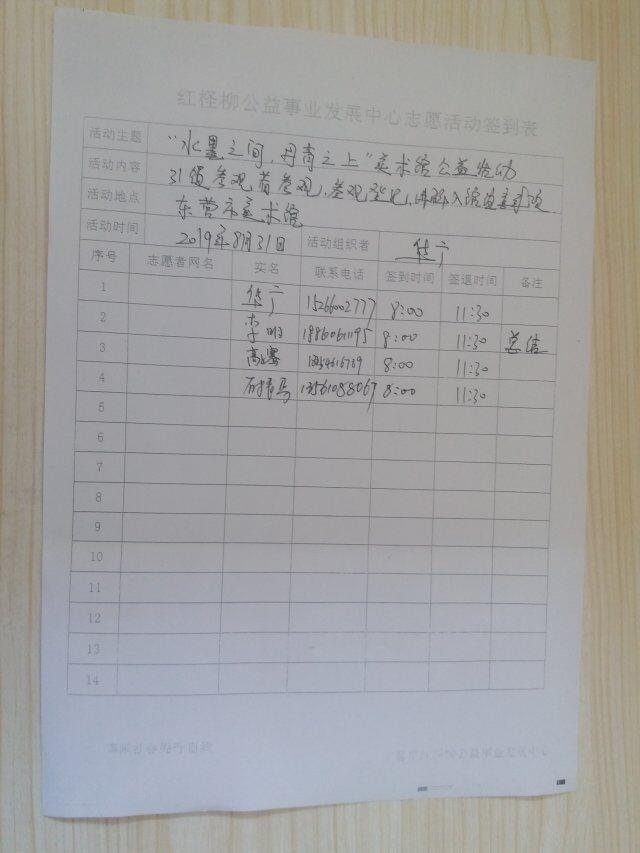 红柽柳公益事业发展中心志愿活动签到表
活动主题 "水墨之间,丹青之上"美术馆公益活动
活动内容 引领参观者参观,参观登记,讲解入馆注意事项.
活动地点 东营市美术馆
活动时间 2019年8月31日 活动组织者
序号 志愿者网名 实名 联系电话 签到时间 签退时间 备注
1 15266002777 8:00 11:30
2 李明 18860611195 8:00 11:30 总结
3 8:00 11:30
4 13561088067 8:00 11:30
5
6
7
8
9
10
11
12
13
14